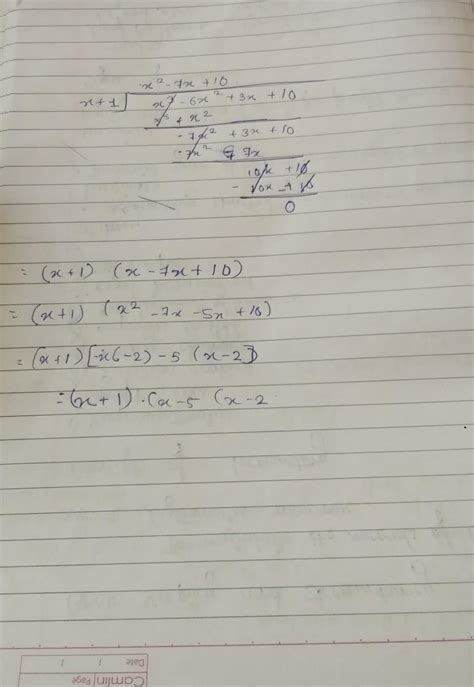 x² - 7x + 10
x + 1 ) x³ - 6x² + 3x + 10
x³ + x²
- 7x² + 3x + 10
- 7x² 7x
10x + 10
- 10x + 10
0
= (x+1) (x - 7x + 10)
= (x+1) (x² - 7x - 5x + 10)
= (x+1) [-x(-2) - 5 (x-2)]
= (x+1) . (x-5 (x-2
Camlin Page
Date / /